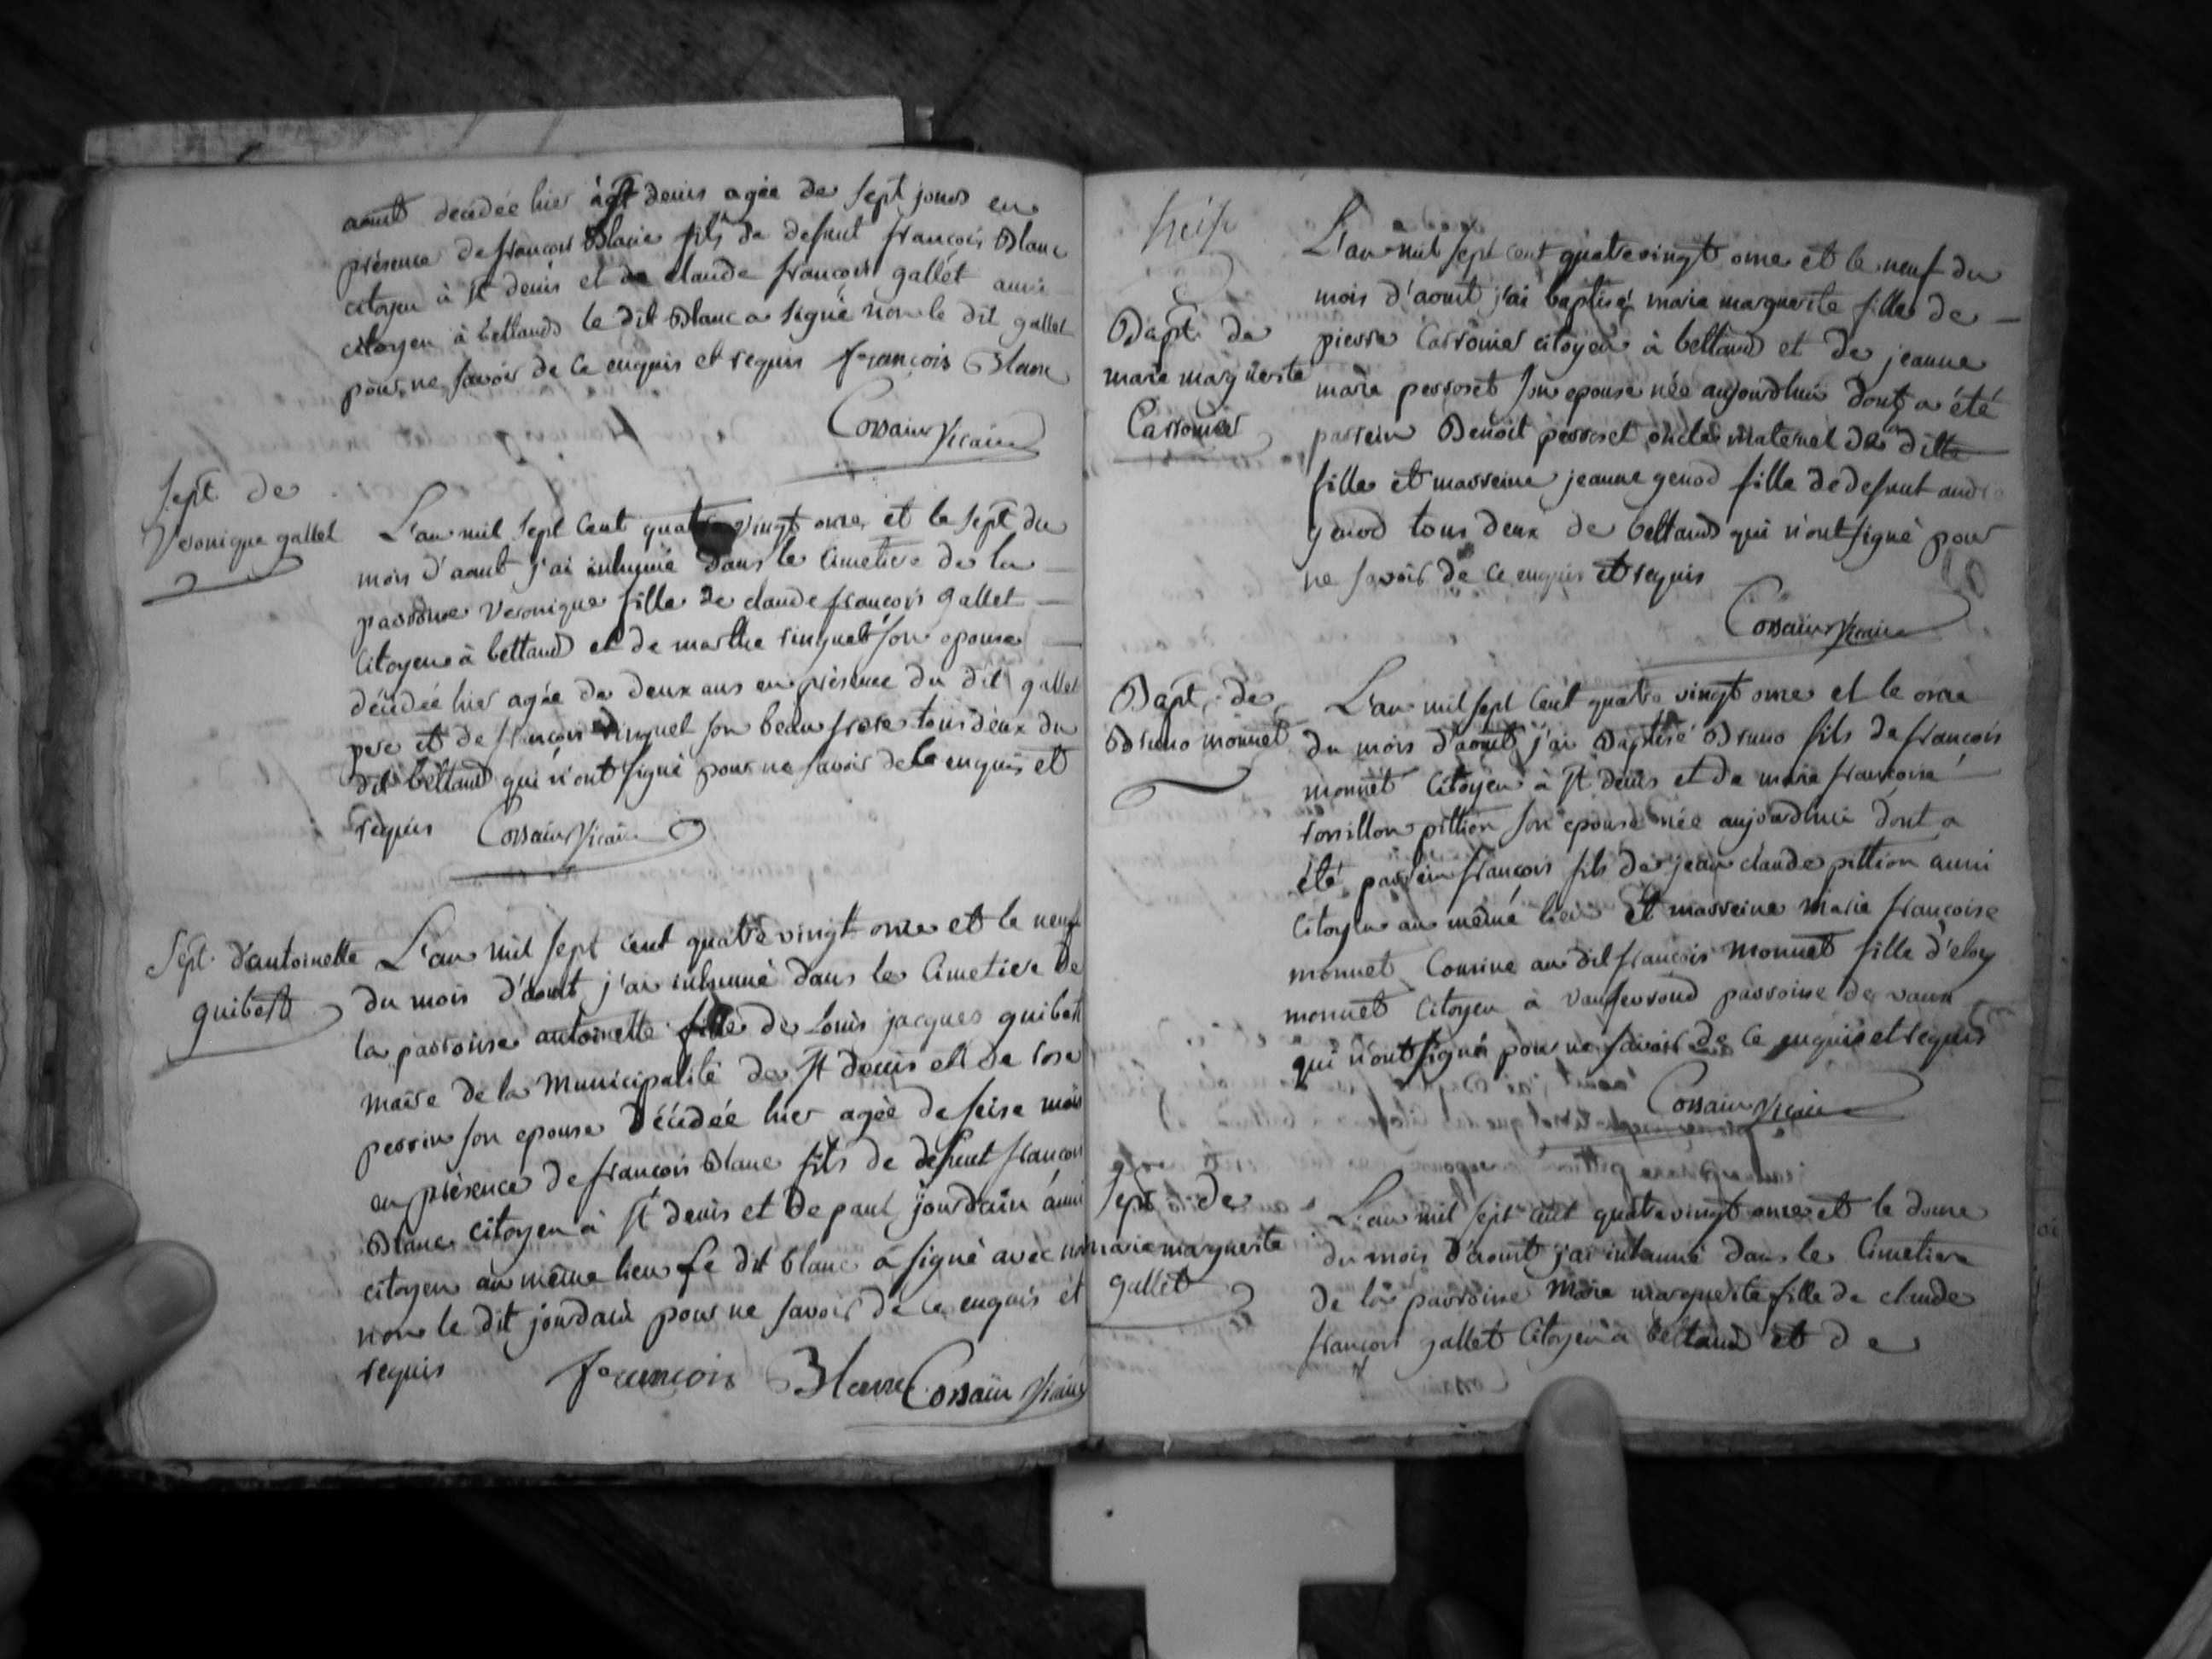 aout decédée hier à st denis agée de sept jours en
présence de françois Blanc fils de defunt françois Blanc
citoyen à st denis et de claude françois gallet aussi
citoyen à bettand le dit Blanc a signé non le dit gallet
pour ne savoir de ce enquis et requis françois Blanc
Cossain Vicaire
sept. de
Veronique gallet
L'an mil sept cent quatre vingt onze et le sept du
mois d'aout j'ai inhumé dans le Cimetiere de la
parroisse Veronique fille de claude françois gallet
Citoyen à bettand et de marthe ringuet son epouse
décédée hier agée de deux ans en présence du dit gallet
pere et de françois ringuet son beau frere tous deux du
dit bettand qui n'ont signé pour ne savoir de ce enquis et
requis Cossain Vicaire
Sept. d'antoinette
guibert
L'an mil sept cent quatre vingt onze et le neuf
du mois d'aout j'ai inhumé dans le Cimetiere de
la parroisse antoinette fille de Louis jacques guibert
maire de la Municipalité de st denis et de rose
perrin son epouse décédée hier agée de seise mois
en présence de françois Blanc fils de defunt françois
Blanc citoyen à st denis et de paul jourdain aussi
citoyen au même lieu le dit blanc a signé avec nous
non le dit jourdain pour ne savoir de ce enquis et
requis françois Blanc Cossain Vicaire
seise
Bapt. de
marie marguerite
Carronier
L'an mil sept cent quatre vingt onze et le neuf du
mois d'aout j'ai baptisé marie marguerite fille de
pierre Carronier citoyen à bettand et de jeanne
marie perroset son epouse née aujourdhui dont a été
parrein Benoit perroset oncle maternel de la ditte
fille et marreine jeanne genod fille de defunt andre
genod tous deux de bettand qui n'ont signé pour
ne savoir de ce enquis et requis
Cossain Vicaire
Bapt. de
Bruno monnet
L'an mil sept cent quatre vingt onze et le onze
du mois d'aout j'ai Baptisé Bruno fils de françois
monnet Citoyen à st denis et de marie françoise
rossillon pittion son epouse née aujourdhui dont a
été parrein françois fils de jean claude pittion aussi
Citoyen au même lieu et marreine marie françoise
monnet Cousine au dit françois Monnet fille d'eloy
monnet Citoyen à vaufevroud parroisse de vaux
qui n'ont signés pour ne savoir de ce enquis et requis
Cossain Vicaire
sept. de
marie marguerite
gallet
L'an mil sept cent quatre vingt onze et le douze
du mois d'aout j'ai inhumé dans le Cimetiere
de la parroisse Marie marguerite fille de claude
françois gallet Citoyen à bettand et de